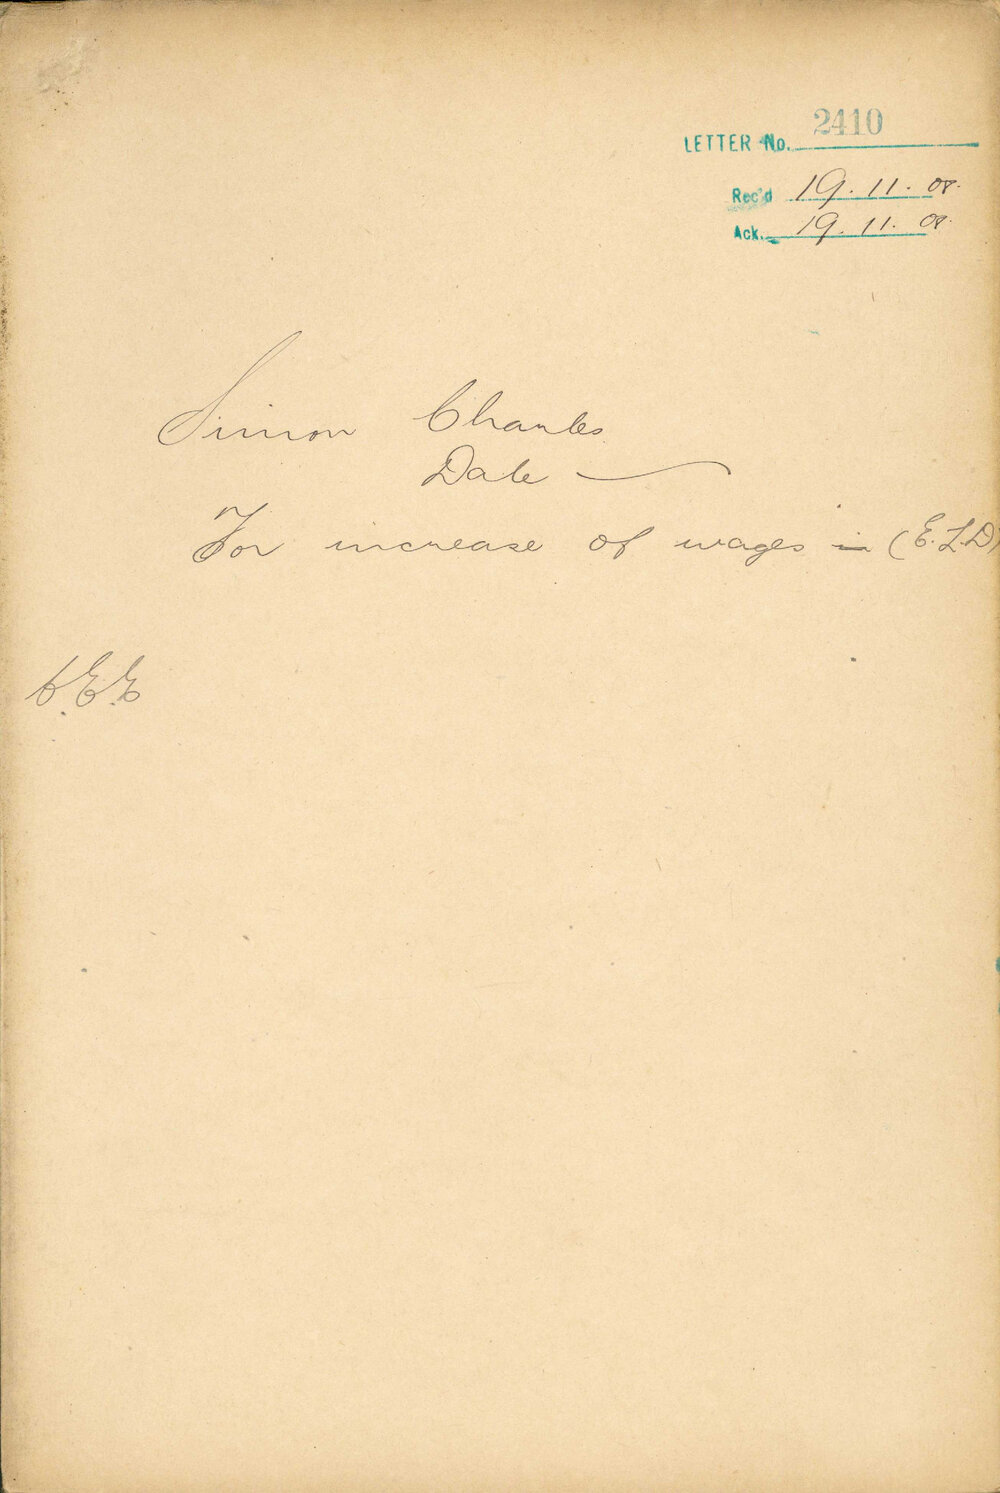 LETTER No. 2410
Rec'd 19.11.08.
Ack. 19.11.08.
Simon Charles
Date
For increase of wages in (E.L.D)
C.E.E